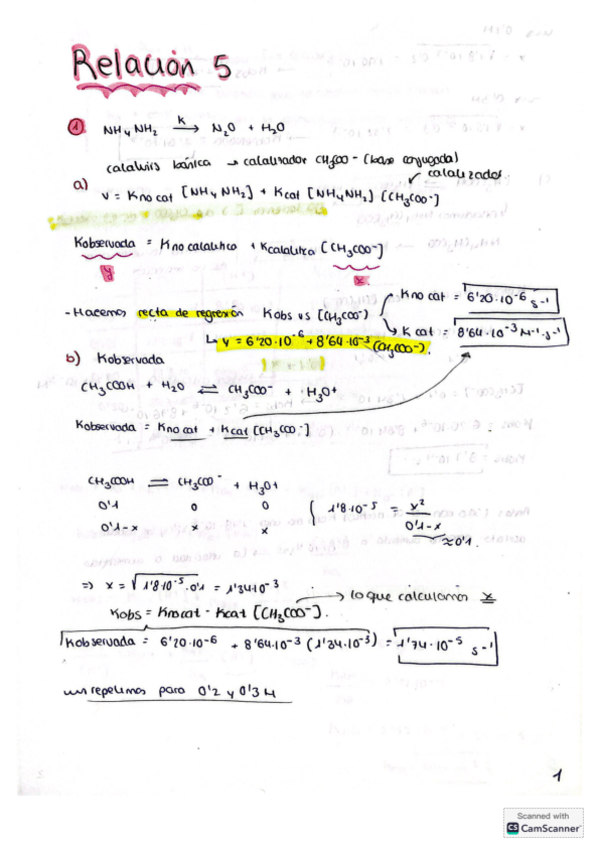 Relación 5
① NH4NH2 —K→ N2O + H2O
catálisis básica → catalizador CH3COO- (base conjugada)
a) v = Kno cat [NH4NH2] + Kcat [NH4NH2] [CH3COO-] catalizador
Kobservada = Kno catalítica + Kcatalítica [CH3COO-]
y x
- Hacemos recta de regresión Kobs vs [CH3COO-] Kno cat = 6'20·10-6 s-1
K cat = 8'64·10-3 M-1·s-1
↳ y = 6'20·10-6 + 8'64·10-3 (CH3COO-).
b) Kobservada
CH3COOH + H2O ⇌ CH3COO- + H3O+
Kobservada = Kno cat + Kcat [CH3COO-]
CH3COOH ⇌ CH3COO- + H3O+
0'1 0 0
0'1-x x x
1'8·10-5 = x2 / 0'1-x
≈0'1.
=> x = √1'8·10-5·0'1 = 1'34·10-3
→ lo que calculamos x
Kobs = Kno cat - Kcat [CH3COO-].
Kobservada = 6'20·10-6 + 8'64·10-3 (1'34·10-3) = 1'74·10-5 s-1
repetimos para 0'2 y 0'3 M
1
Scanned with
CS CamScanner